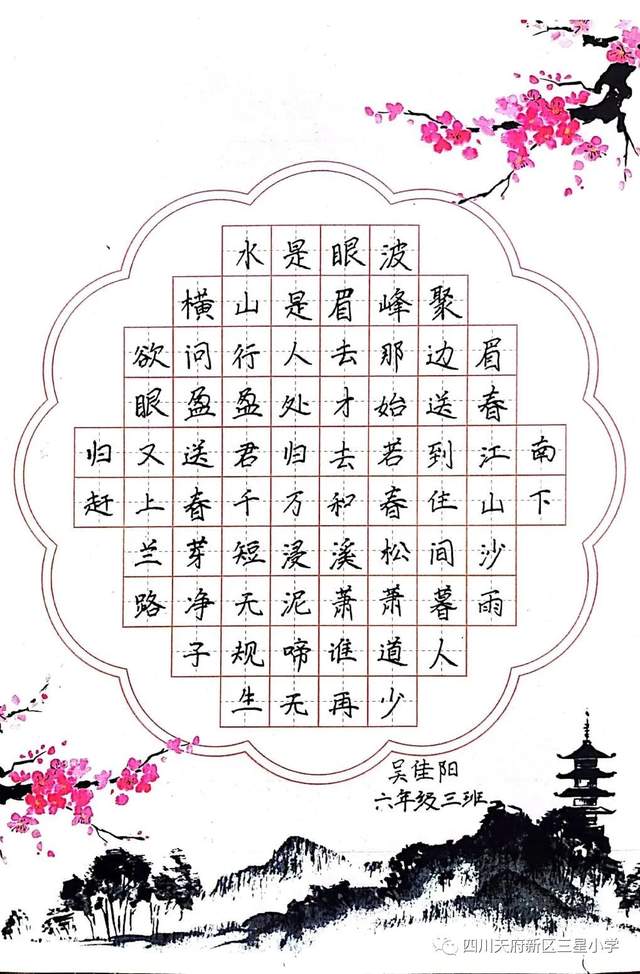 水是眼波
横山是眉峰聚
欲问行人去那边眉
眼盈盈处才始送春
归又送君归去若到江南
赶上春千万和春住山下
兰芽短浸溪松间沙
路净无泥萧萧暮雨
子规啼谁道人
生无再少
吴佳阳
六年级三班
四川天府新区三星小学